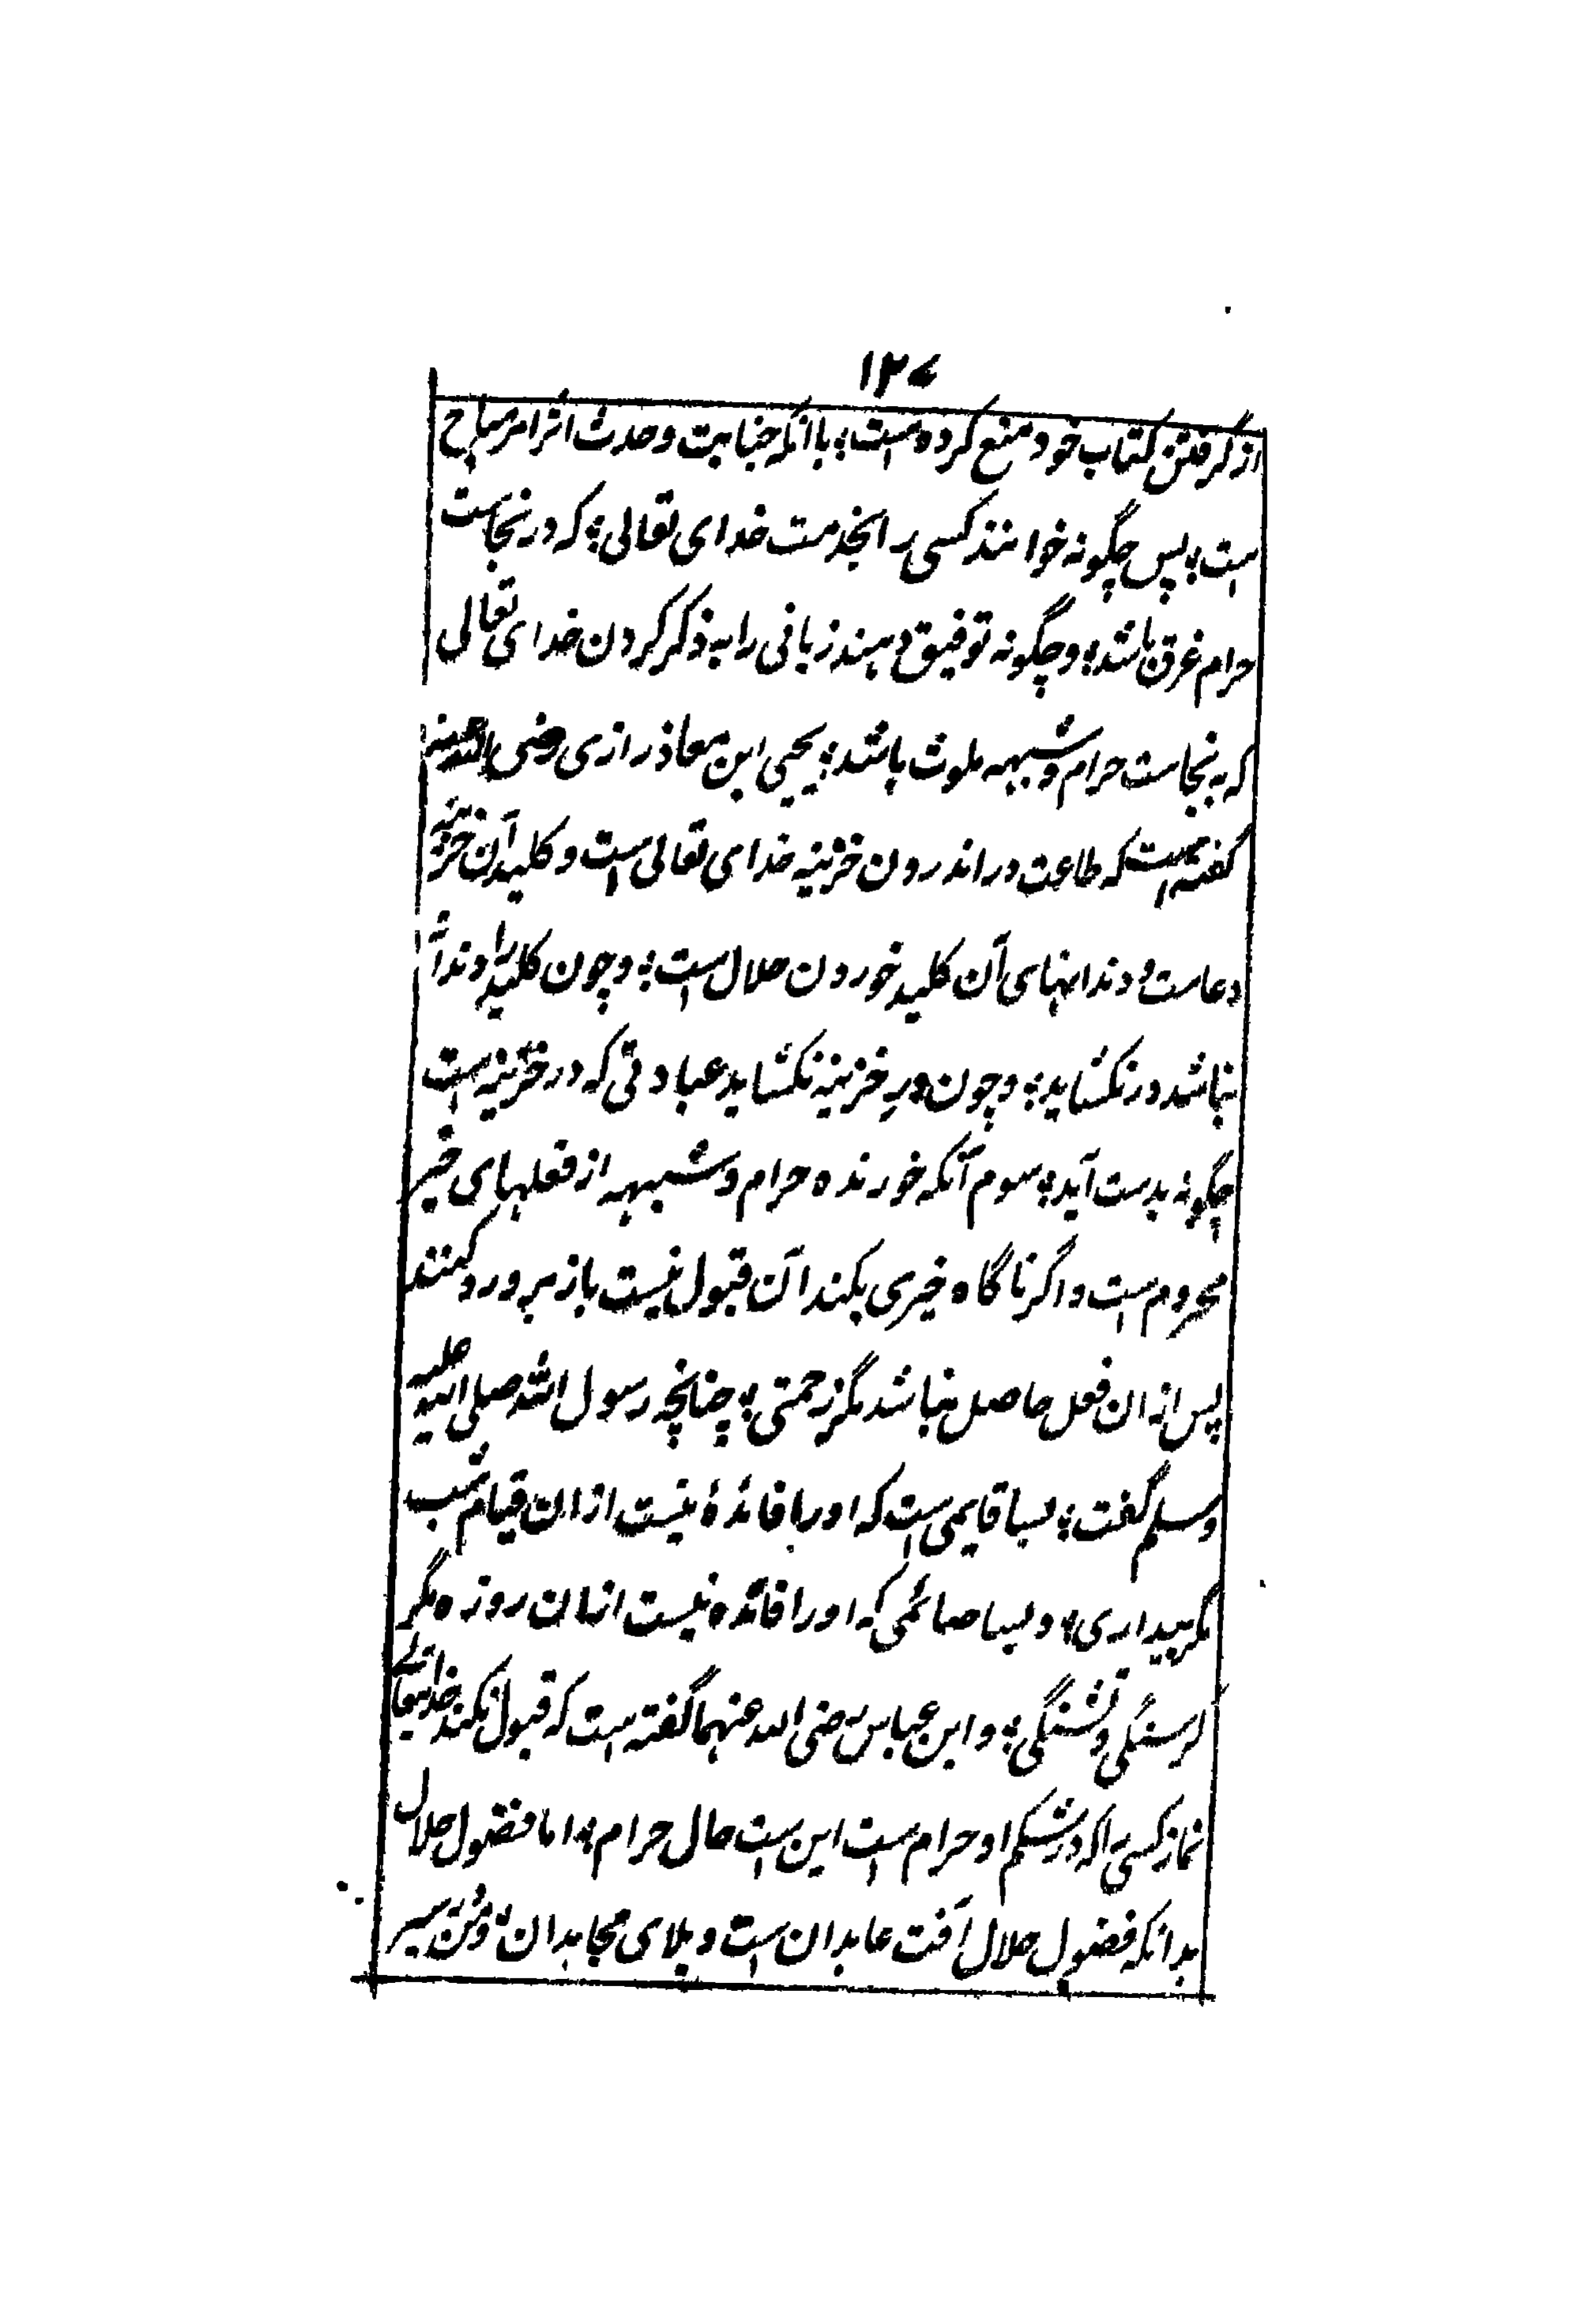 ۱۲۷
از گرفتن کتاب خود منع کرده است؛ با آنکه جنابت و حدث اثر امر مباح
است؛ پس چگونه خوانند کسی را بخدمت خدای تعالی؛ که در نجاست
حرام غرق باشد؛ و چگونه توفیق دهند زبانی را به ذکر کردن خدای تعالی
که به نجاست حرام و شبهه ملوث باشد؛ یحیی ابن معاذ رازی رضی الله عنه
گفته است که طاعت در اندرون خزینه خدای تعالی است و کلید آن خزینه
دعاست و دندانهای آن کلید خوردن حلال است؛ و چون کلید را دندانه
نباشد در نکشاید؛ و چون در خزینه نکشاید عبادتی که در خزینه است
چگونه بدست آید؛ سوم آنکه خورنده حرام و شبهه از فعلهای خیر
محروم است و اگر ناگاه خیری بکند آن قبول نیست باز برو رد کنند
پس از ان فعل حاصل نباشد مگر زحمتی؛ چنانچه رسول الله صلی الله علیه
وسلم گفت؛ بسا قایمی است که او را فائدۀ نیست از ان قیام شب
مگر بیداری؛ و بسا صائمی که او را فائده نیست از ان روزه مگر
گرسنگی و تشنگی؛ و ابن عباس رضی الله عنهما گفته است که قبول نکند خدایتعالے
نماز کسی را که در شکم او حرام است این است حال حرام؛ اما فضول حلال
بدانکه فضول حلال آفت عابدان است و بلای مجاهدان؛ و من سیر